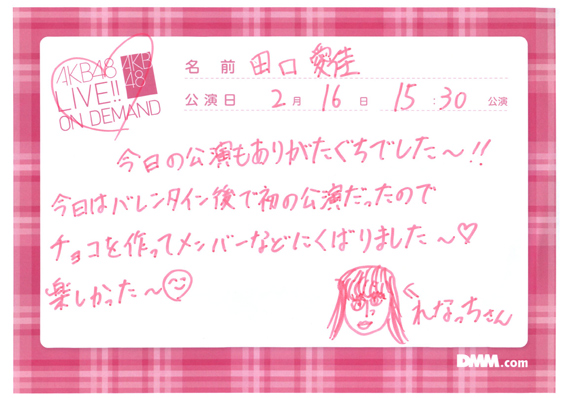 AKB48
LIVE!!
ON DEMAND
AKB
48
名前 田口 愛佳
公演日 2月 16日 15:30 公演
今日の公演もありがたぐちでした〜!!
今日はバレンタイン後で初の公演だったので
チョコを作ってメンバーなどにくばりました〜♡
楽しかった〜
れなっちさん
DMM.com